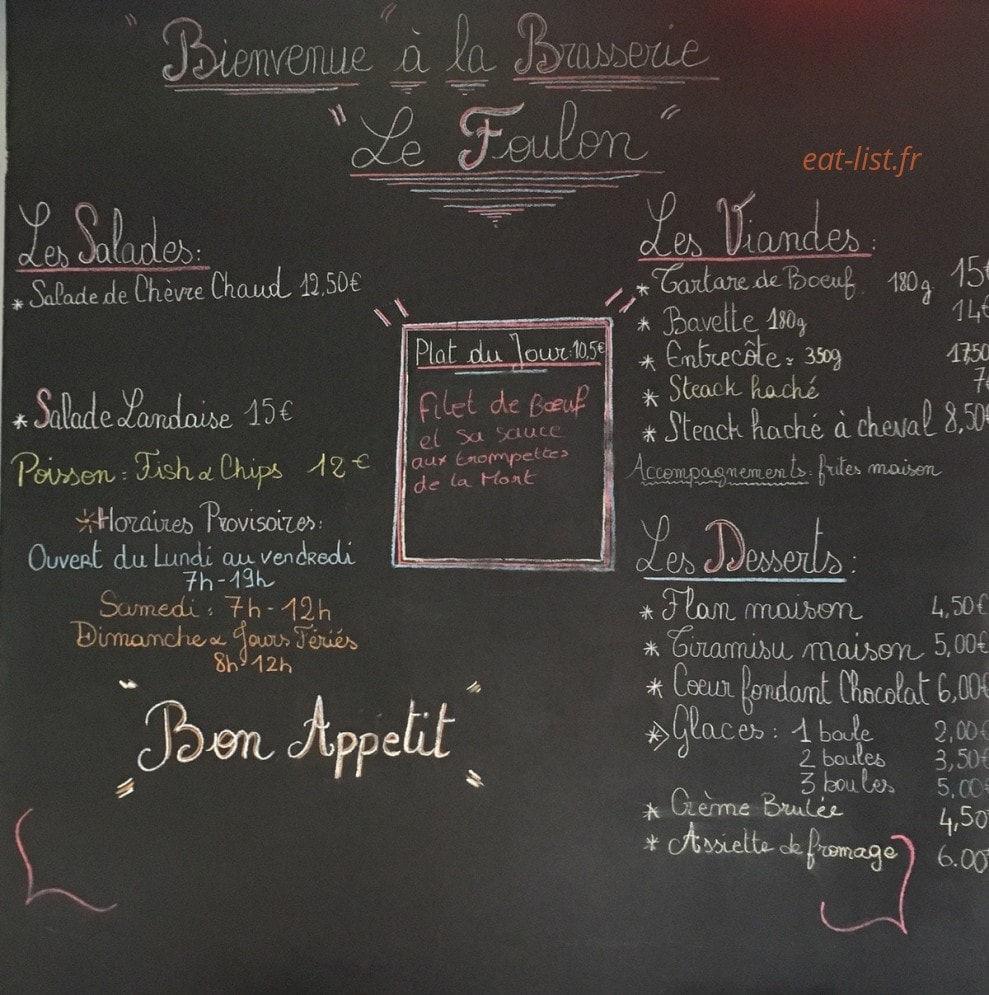 "Bienvenue" à la Brasserie
"Le Foulon"
eat-list.fr
Les Salades:
* Salade de Chèvre Chaud 12,50€
* Salade Landaise 15€
Poisson: Fish & Chips 12€
* Horaires Provisoires:
Ouvert du Lundi au vendredi
7h-19h
Samedi: 7h-12h
Dimanche & Jours Fériés
8h-12h
"Bon Appetit"
Plat du Jour: 10,5€
filet de Bœuf
et sa sauce
aux trompettes
de la Mort
Les Viandes:
* Tartare de Boeuf 180g 15€
* Bavette 180g 14€
* Entrecôte: 350g 17,50
* Steack haché 7€
* Steack haché à cheval 8,50€
Accompagnements: frites maison
Les Desserts:
* Flan maison 4,50€
* Tiramisu maison 5,00€
* Coeur fondant Chocolat 6,00€
* Glaces: 1 boule 2,00€
2 boules 3,50€
3 boules 5,00€
* Crème Brulée 4,50
* Assiette de fromage 6.00